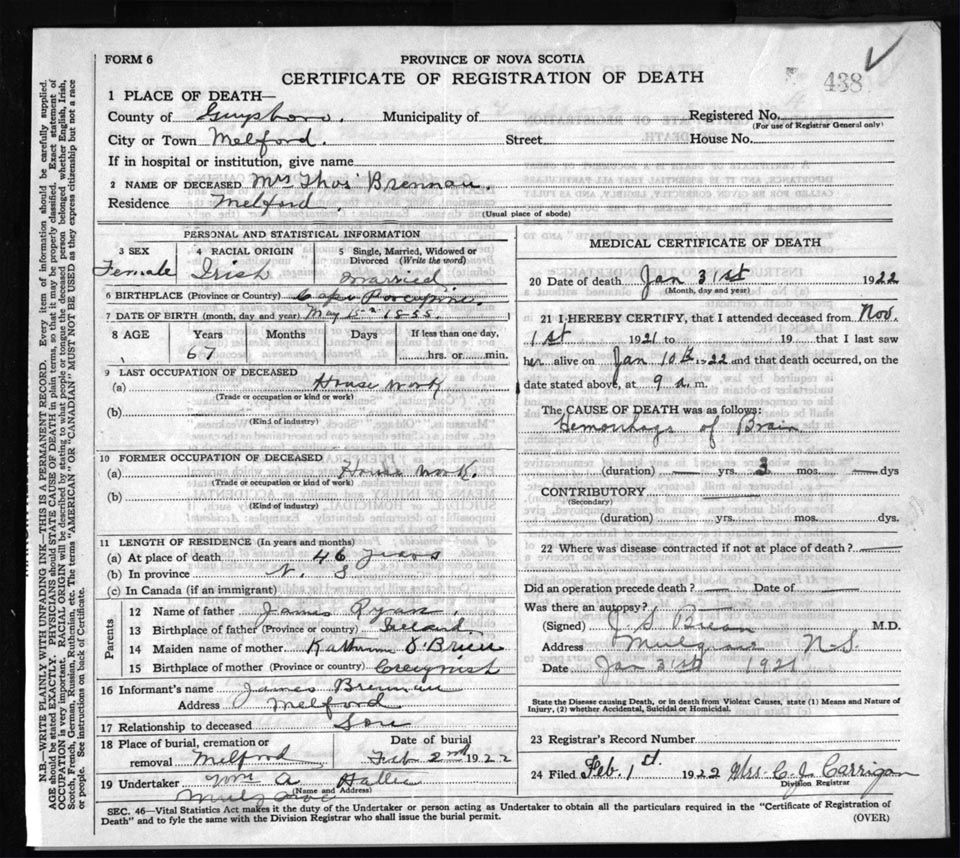 FORM 6
PROVINCE OF NOVA SCOTIA
CERTIFICATE OF REGISTRATION OF DEATH
438
1 PLACE OF DEATH—
County of Guysboro. Municipality of Registered No.
(For use of Registrar General only)
City or Town Melford. Street House No.
If in hospital or institution, give name
2 NAME OF DECEASED Mrs Thos Brennan.
Residence Melford.
(Usual place of abode)
PERSONAL AND STATISTICAL INFORMATION
3 SEX
Female
4 RACIAL ORIGIN
Irish
5 Single, Married, Widowed or Divorced (Write the word)
Married
6 BIRTHPLACE (Province or Country) Cape Porcupine.
7 DATE OF BIRTH (month, day and year) May 15 1855.
8 AGE Years Months Days If less than one day,
67 hrs. or min.
9 LAST OCCUPATION OF DECEASED
(a) House Work
(Trade or occupation or kind or work)
(b)
(Kind of industry)
10 FORMER OCCUPATION OF DECEASED
(a) House Work.
(Trade or occupation or kind of work)
(b)
(Kind of industry)
11 LENGTH OF RESIDENCE (In years and months)
(a) At place of death 46 years
(b) In province N. S
(c) In Canada (if an immigrant)
Parents
12 Name of father James Ryan.
13 Birthplace of father (Province or country) Ireland.
14 Maiden name of mother O'Brien
15 Birthplace of mother (Province or country) Creignish
16 Informant's name James Brennan
Address Melford
17 Relationship to deceased Son
18 Place of burial, cremation or removal Melford
Date of burial Feb 2nd 1922
19 Undertaker A
(Name and Address)
MEDICAL CERTIFICATE OF DEATH
20 Date of death Jan 31st 1922
(Month, day and year)
21 I HEREBY CERTIFY, that I attended deceased from Nov.
1st 1921 to 19 that I last saw
her alive on Jan 10th 1922 and that death occurred, on the
date stated above, at 9 a. m.
The CAUSE OF DEATH was as follows:
Hemorrhage of Brain
(duration) — yrs. 3 mos. — dys
CONTRIBUTORY —
(Secondary)
(duration) yrs. mos. dys.
22 Where was disease contracted if not at place of death? —
Did an operation precede death? — Date of —
Was there an autopsy?
(Signed) J S M.D.
Address Mulgrave N.S.
Date Jan 31st 1921
State the Disease causing Death, or in death from Violent Causes, state (1) Means and Nature of Injury, (2) whether Accidental, Suicidal or Homicidal.
23 Registrar's Record Number
24 Filed Feb. 1st. 1922 Mrs. C. J. Carrigan
Division Registrar
SEC. 46—Vital Statistics Act makes it the duty of the Undertaker or person acting as Undertaker to obtain all the particulars required in the "Certificate of Registration of
Death" and to fyle the same with the Division Registrar who shall issue the burial permit.
(OVER)
N.B.—WRITE PLAINLY WITH UNFADING INK—THIS IS A PERMANENT RECORD. Every item of information should be carefully supplied.
AGE should be stated EXACTLY. PHYSICIANS should STATE CAUSE OF DEATH in plain terms, so that it may be properly classified. Exact statement of
OCCUPATION is very important. RACIAL ORIGIN will be described by stating to what people or tongue the deceased person belonged whether English, Irish,
Scotch, French, German, Russian, Ruthenian, etc. The terms "AMERICAN" OR "CANADIAN" MUST NOT BE USED as they express citizenship but not a race
or people. See instructions on back of Certificate.